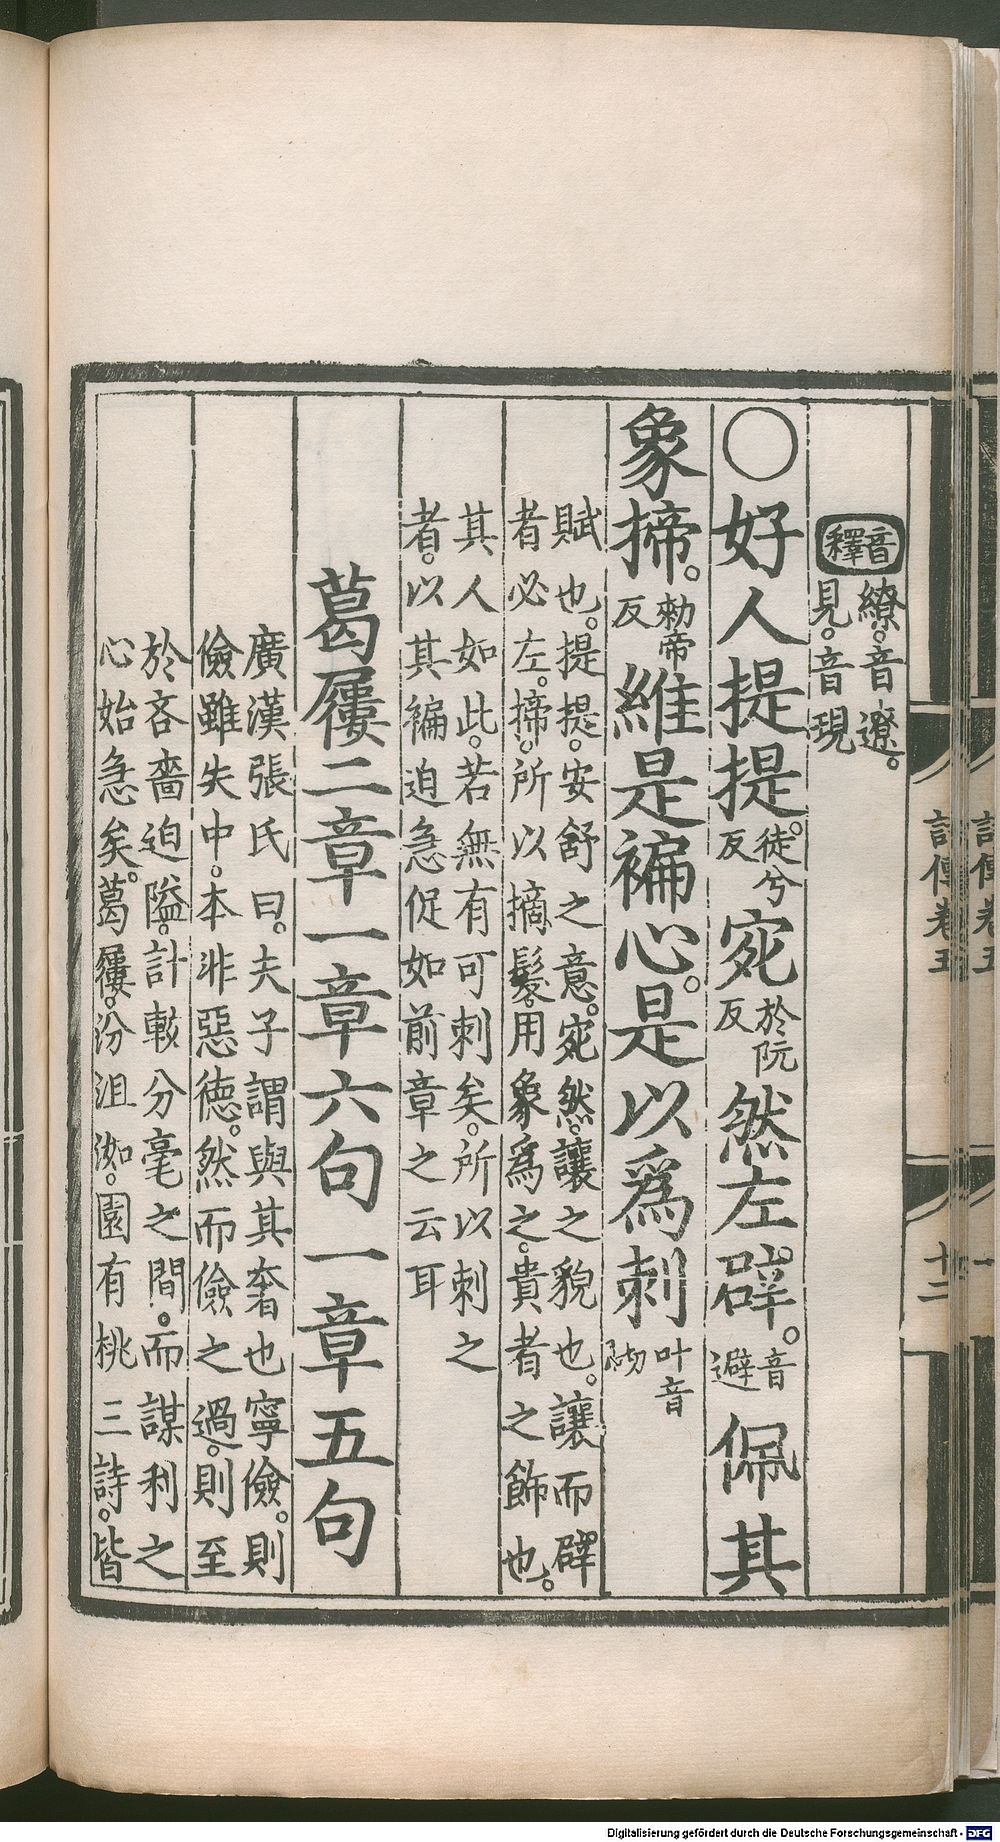 音釋
繚。音遼。
見。音現
○好人提提。徒兮反宛於阮反然左辟。音避佩其
象揥。勑帝反維是褊心。是以爲刺叶音砌
賦也。提提。安舒之意。宛然。讓之貌也。讓而辟
者必左。揥。所以摘髮。用象爲之。貴者之飾也。
其人如此。若無有可刺矣。所以刺之
者。以其褊迫急促如前章之云耳
葛屨二章一章六句一章五句
廣漢張氏曰。夫子謂與其奢也寧儉。則
儉雖失中。本非惡德。然而儉之過。則至
於吝嗇迫隘。計較分毫之間。而謀利之
心始急矣。葛屨。汾沮洳。園有桃三詩。皆
詩傳卷五
十二
Digitalisierung gefördert durch die Deutsche Forschungsgemeinschaft - DFG